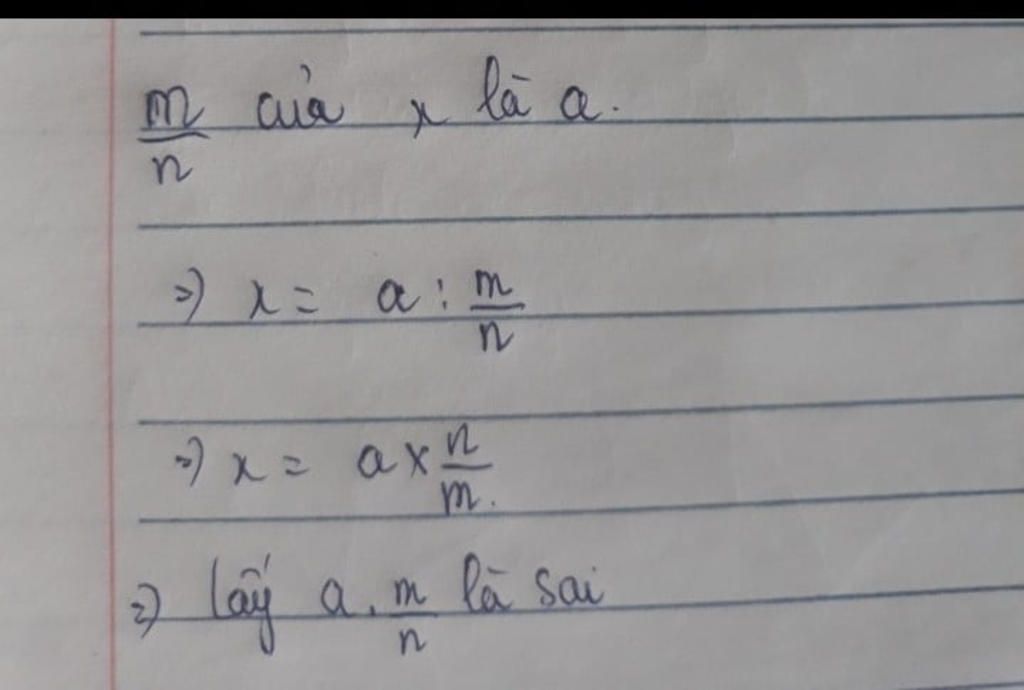 m/n của x là a.
=) x = a : m/n
=) x = a × n/m.
=) lấy a. m/n là sai